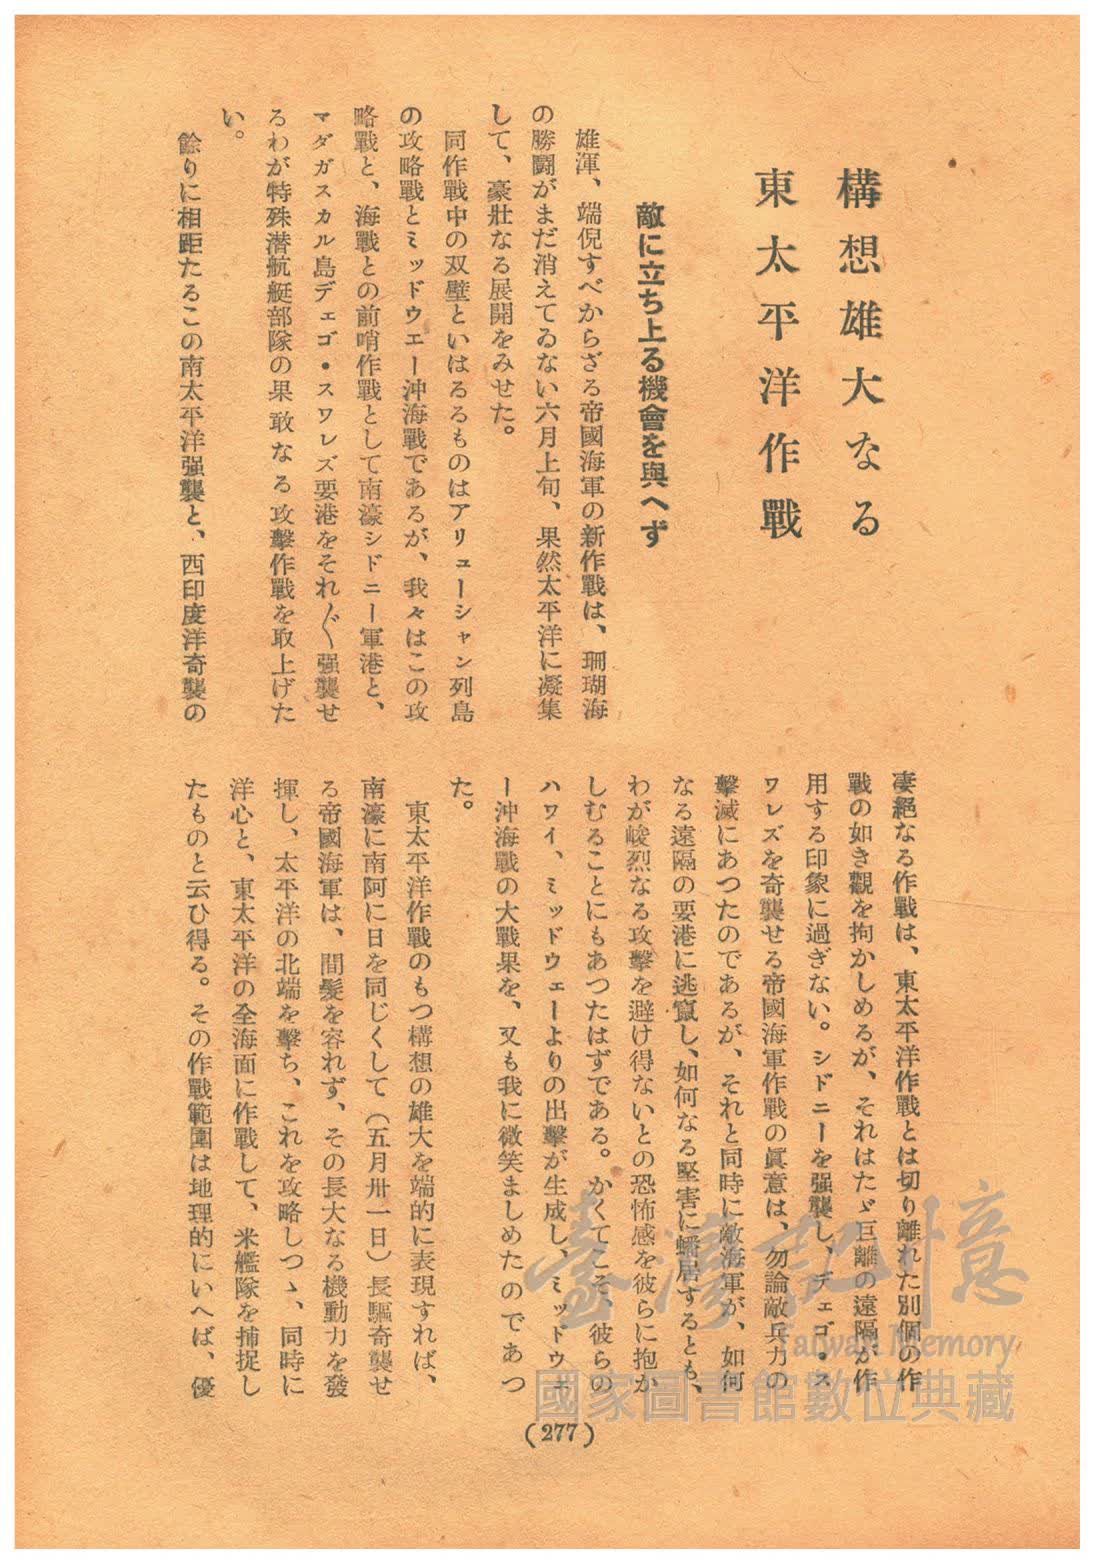 構想雄大なる
東太平洋作戰
敵に立ち上る機會を與へず
雄渾、端倪すべからざる帝國海軍の新作戰は、珊瑚海
の勝鬪がまだ消えてゐない六月上旬、果然太平洋に凝集
して、豪壯なる展開をみせた。
同作戰中の双壁といはるるものはアリューシャン列島
の攻略戰とミッドウエー沖海戰であるが、我々はこの攻
略戰と、海戰との前哨作戰として南濠シドニー軍港と、
マダガスカル島デェゴ・スワレズ要港をそれ〴〵强襲せ
るわが特殊潜航艇部隊の果敢なる攻擊作戰を取上げた
い。
餘りに相距たるこの南太平洋强襲と、西印度洋奇襲の
凄絕なる作戰は、東太平洋作戰とは切り離れた別個の作
戰の如き觀を拘かしめるが、それはたゞ巨離の遠隔が作
用する印象に過ぎない。シドニーを强襲し、デェゴ・ス
ワレズを奇襲せる帝國海軍作戰の眞意は、勿論敵兵力の
擊滅にあつたのであるが、それと同時に敵海軍が、如何
なる遠隔の要港に逃竄し、如何なる堅害に蟠居するとも、
わが峻烈なる攻擊を避け得ないとの恐怖感を彼らに抱か
しむることにもあつたはずである。かくてこそ、彼らの
ハワイ、ミッドウェーよりの出擊が生成し、ミッドウェ
ー沖海戰の大戰果を、又も我に微笑ましめたのであつ
た。
東太平洋作戰のもつ構想の雄大を端的に表現すれば、
南濠に南阿に日を同じくして（五月卅一日）長驅奇襲せ
る帝國海軍は、間髮を容れず、その長大なる機動力を發
揮し、太平洋の北端を擊ち、これを攻略しつゝ、同時に
洋心と、東太平洋の全海面に作戰して、米艦隊を捕捉し
たものと云ひ得る。その作戰範圍は地理的にいへば、優
(277)
臺灣記憶
Taiwan Memory
國家圖書館數位典藏